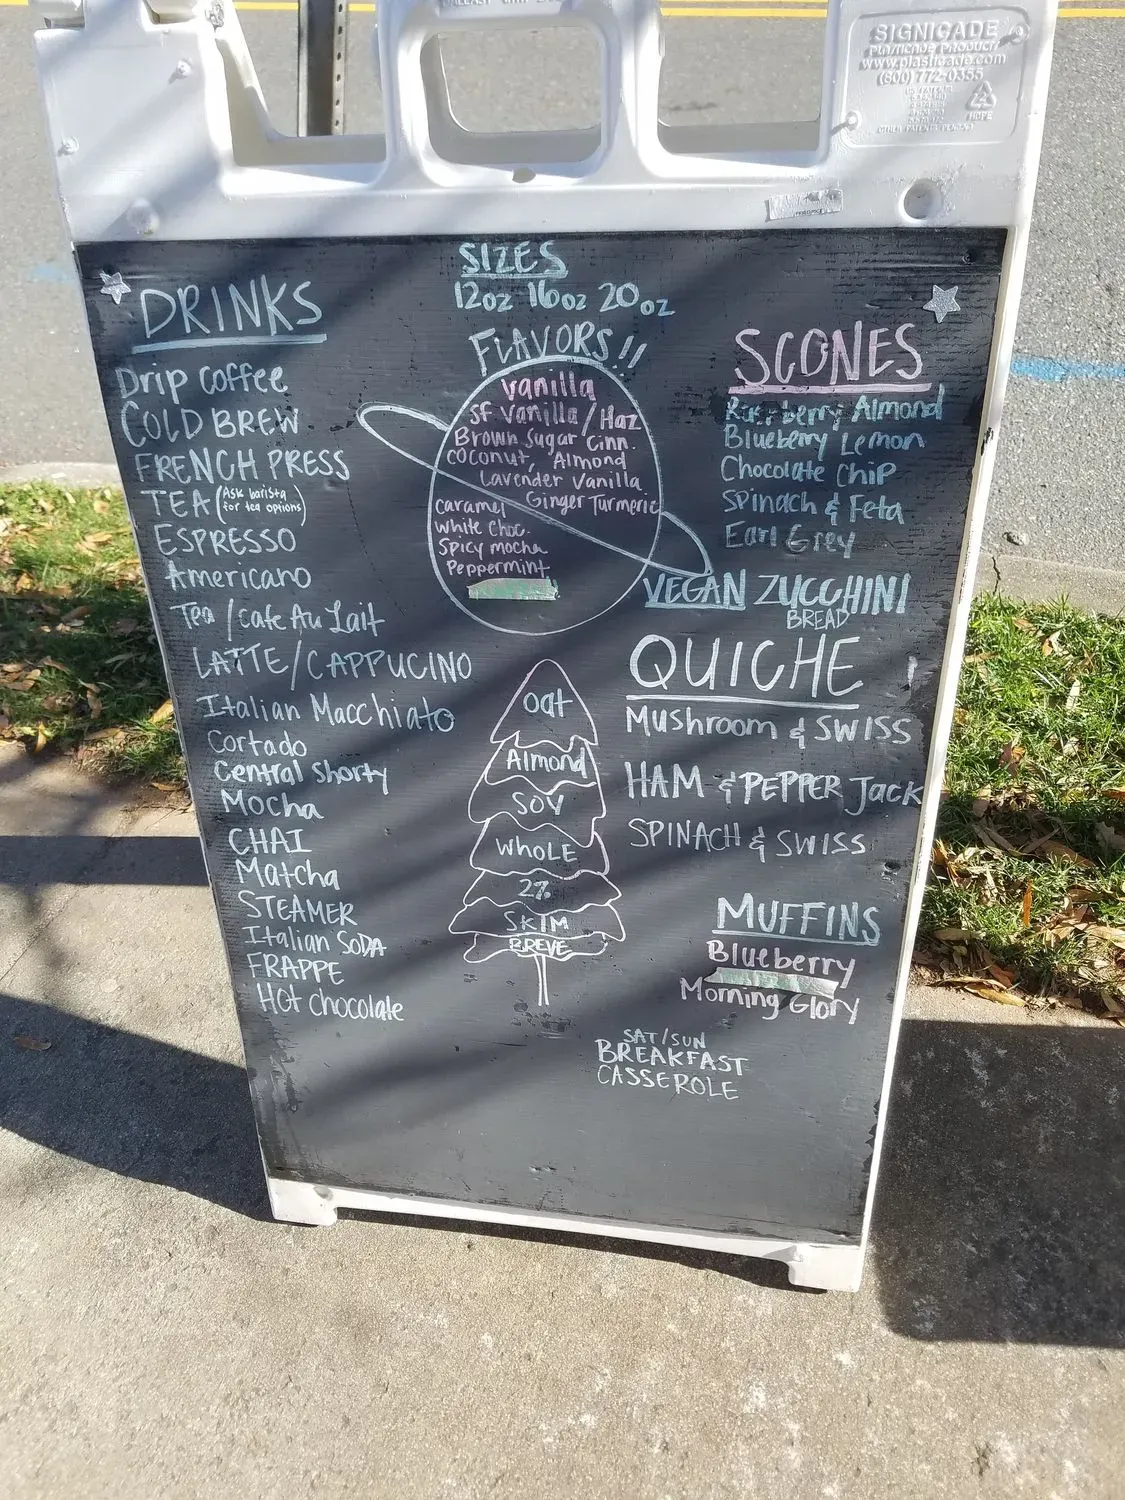 SIGNICADE
PLASTICADE PRODUCT
www.plasticade.com
(800) 772-0355
HDPE
SIZES
12oz 16oz 20oz
DRINKS
Drip Coffee
COLD BREW
FRENCH PRESS
TEA (Ask barista
for tea options)
ESPRESSO
Americano
Tea / cafe Au Lait
LATTE/CAPPUCINO
Italian Macchiato
Cortado
Central Shorty
Mocha
CHAI
Matcha
STEAMER
Italian SODA
FRAPPE
Hot chocolate
FLAVORS!!
Vanilla
SF Vanilla / Haz
Brown Sugar Cinn.
Coconut, Almond
Lavender Vanilla
Ginger Turmeric
caramel
White Choc.
Spicy mocha
Peppermint
Oat
Almond
SOY
WHOLE
2%
SKIM
BREVE
SCONES
Raspberry Almond
Blueberry Lemon
Chocolate Chip
Spinach & Feta
Earl Grey
VEGAN ZUCCHINI
BREAD
QUICHE
MUSHROOM & SWISS
HAM & PEPPER JACK
SPINACH & SWISS
MUFFINS
Blueberry
Morning Glory
SAT/SUN
BREAKFAST
CASSEROLE